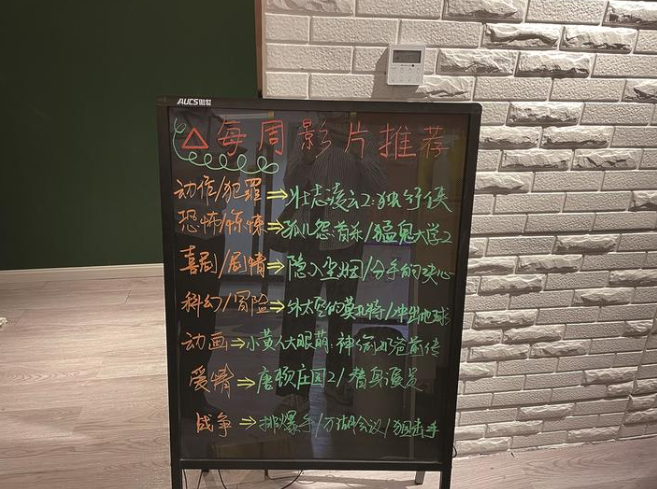 AUCS
△每周影片推荐
动作/犯罪⇒壮志凌云2:独行侠
恐怖/惊悚⇒孤儿怨:首杀/猛鬼大学2
喜剧/剧情⇒隐入尘烟/分手的决心
科幻/冒险⇒外太空的莫扎特/冲出地球
动画⇒小黄人大眼萌:神偷奶爸前传
爱情⇒唐顿庄园2/替身演员
战争⇒拆爆手/万湖会议/狙击手